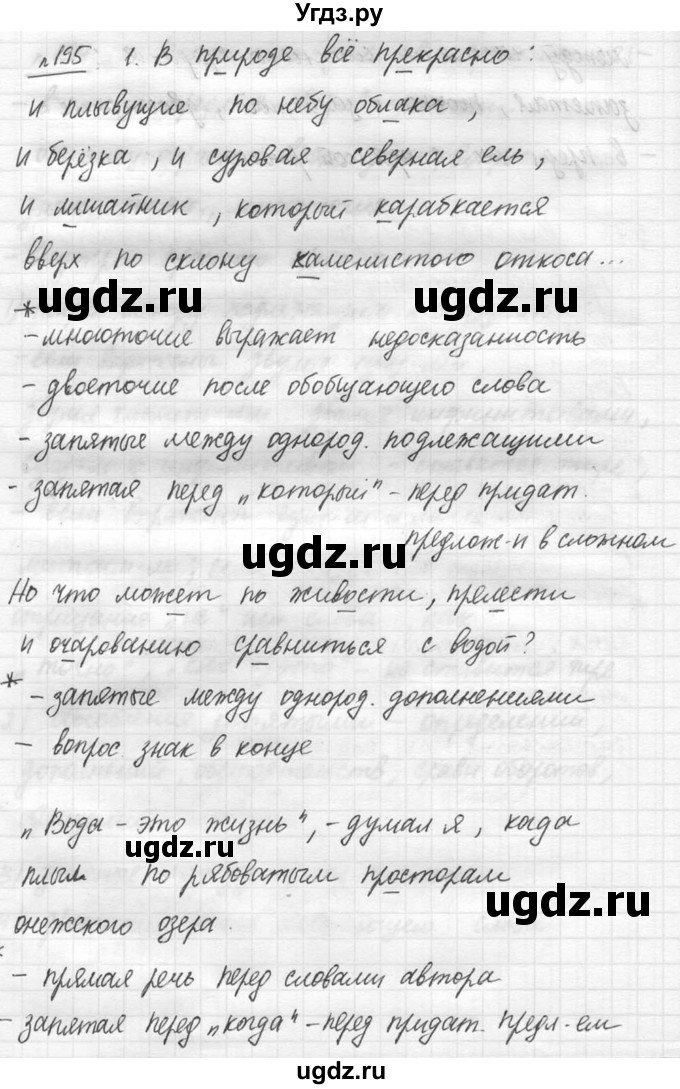 Угдз.ру
n195. 1. В природе всё прекрасно:
и плывущие по небу облака,
и берёзка, и суровая северная ель,
и лишайник, который карабкается
вверх по склону каменистого откоса...
ugdz.ru ugdz.ru
* - многоточие выражает недосказанность
- двоеточие после обобщающего слова
- запятые между однород. подлежащими
- запятая перед "который" - перед придат.
предлож-и в сложном
ugdz.ru
Но что может по живости, прелести
и очарованию сравниться с водой?
* - запятые между однород. дополнениями
- вопрос. знак в конце
"Вода - это жизнь", - думал я, када
ugdz.ru
плыл по рябоватым просторам
ugdz.ru
онежского озера.
- прямая речь перед словами автора
- запятая перед "когда" - перед придат. предл-ем
ugdz.ru